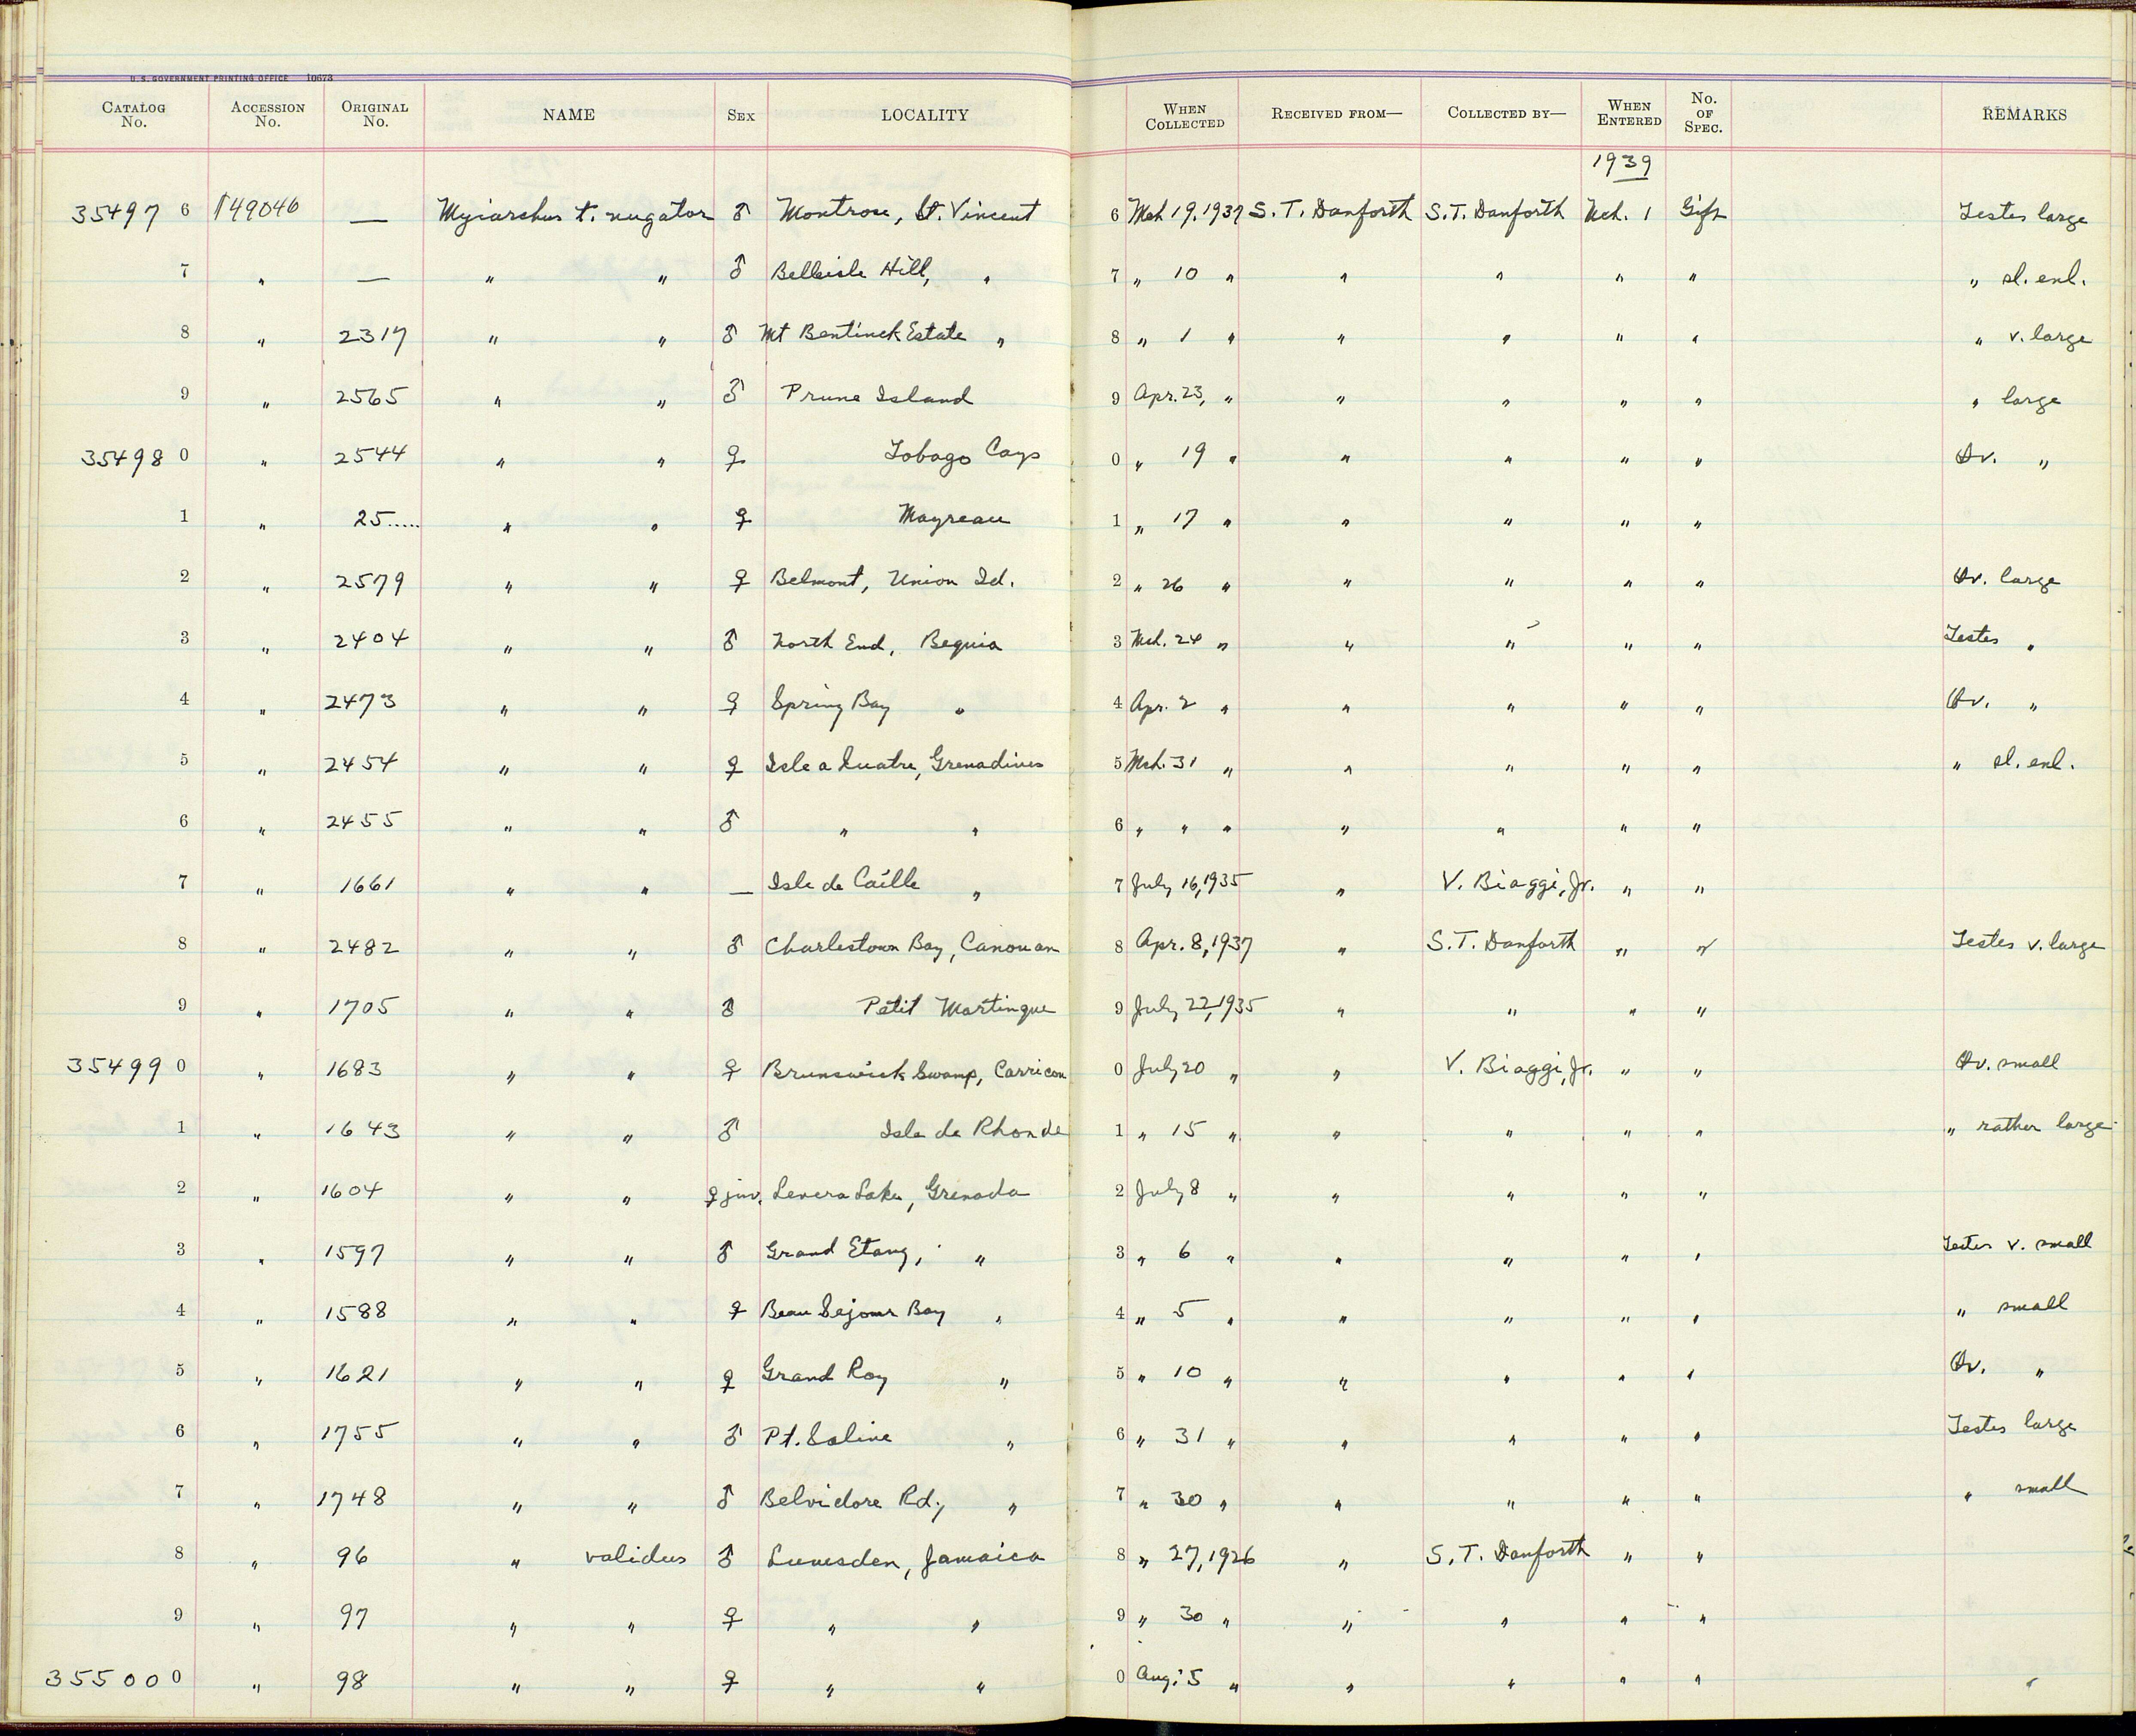 U. S. GOVERNMENT PRINTING OFFICE 10673
CATALOG No. ACCESSION No. ORIGINAL No. NAME SEX LOCALITY WHEN COLLECTED RECEIVED FROM— COLLECTED BY— WHEN ENTERED No. OF SPEC. REMARKS
1939
35497 6 149046 — Myiarchus t. nugator ♂ Montrose, St. Vincent 6 Mch 19, 1937 S. T. Danforth S. T. Danforth Mch. 1 Gift Testes large
7 " — " " ♂ Belleisle Hill, " 7 " 10 " " " " " " sl. enl.
8 " 2317 " " ♂ Mt Bentinck Estate " 8 " 1 " " " " " " v. large
9 " 2565 " " ♂ Prune Island 9 Apr. 23, " " " " " " large
35498 0 " 2544 " " ♀ Tobago Cays 0 " 19 " " " " " Ov. "
1 " 25..... " " ♀ Mayreau 1 " 17 " " " " "
2 " 2579 " " ♀ Belmont, Union Id. 2 " 26 " " " " " Ov. large
3 " 2404 " " ♂ North End, Bequia 3 Mch. 24 " " " " " Testes "
4 " 2473 " " ♀ Spring Bay " 4 Apr. 2 " " " " " Ov. "
5 " 2454 " " ♀ Isle a Quatre, Grenadines 5 Mch. 31 " " " " " " sl. enl.
6 " 2455 " " ♂ " " 6 " " " " " " "
7 " 1661 " " — Isle de Caille " 7 July 16, 1935 " V. Biaggi, Jr. " "
8 " 2482 " " ♂ Charlestown Bay, Canouan 8 Apr. 8, 1937 " S. T. Danforth " " Testes v. large
9 " 1705 " " ♂ Petit Martinque 9 July 22, 1935 " " " "
35499 0 " 1683 " " ♀ Brunswick Swamp, Carricou 0 July 20 " " V. Biaggi, Jr. " " Ov. small
1 " 1643 " " ♂ Isle de Rhonde 1 " 15 " " " " " " rather large
2 " 1604 " " ♀ juv. Levera Lake, Grenada 2 July 8 " " " " "
3 " 1597 " " ♂ Grand Etang, " 3 " 6 " " " " " Testes v. small
4 " 1588 " " ♀ Beau Sejour Bay " 4 " 5 " " " " " " small
5 " 1621 " " ♀ Grand Roy " 5 " 10 " " " " " Ov. "
6 " 1755 " " ♂ Pt. Saline " 6 " 31 " " " " " Testes large
7 " 1748 " " ♂ Belvidore Rd., " 7 " 30 " " " " " " small
8 " 96 " validus ♂ Lumsden, Jamaica 8 " 27, 1926 " S. T. Danforth " "
9 " 97 " " ♀ " " 9 " 30 " " " " "
35500 0 " 98 " " ♀ " " 0 Aug. 5 " " " " "